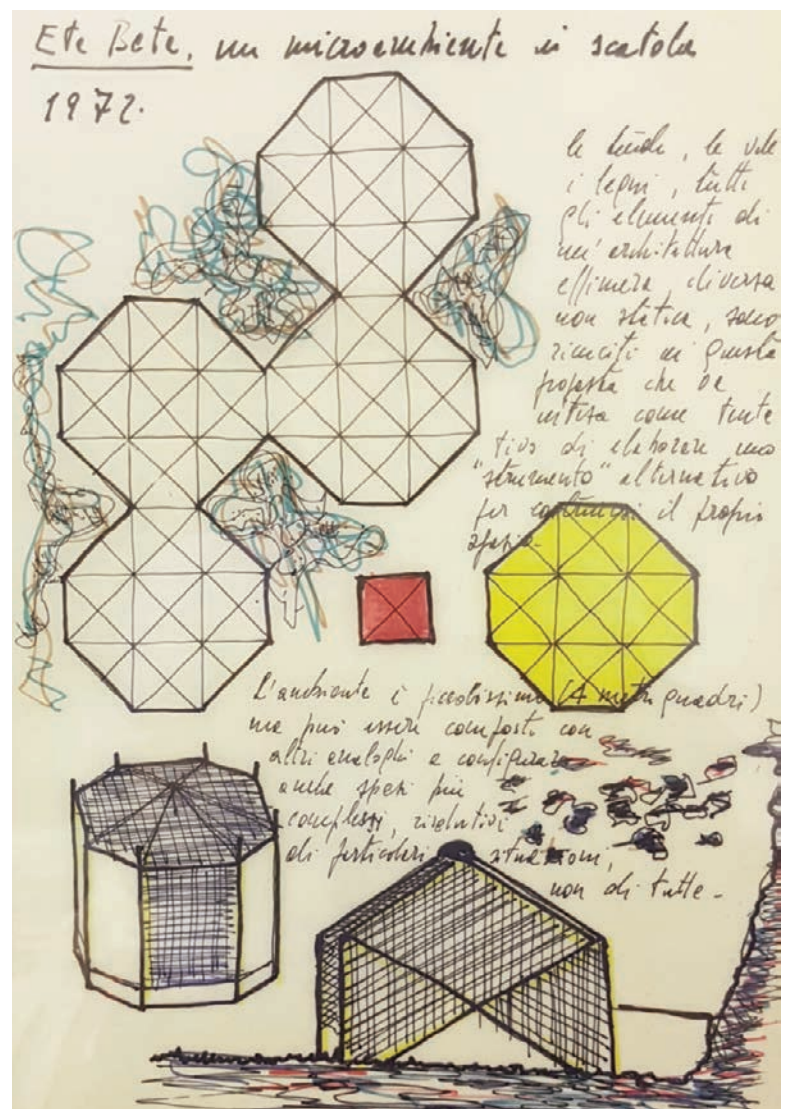 Ete Bete, un microambiente in scatola
1972.
le tende, le vele
i legni, tutti
gli elementi di
un'architettura
effimera, diversa
non statica, sono
riuniti in questa
proposta che si
come tenta
tivo di elaborare uno
"strumento" alternativo
per costruirsi il proprio
spazio.
L'ambiente è piccolissimo (4 metri quadri)
ma può essere composto con
altri analoghi e configurare
anche spazi più
complessi, risolutivi
di particolari situazioni,
non di tutte.